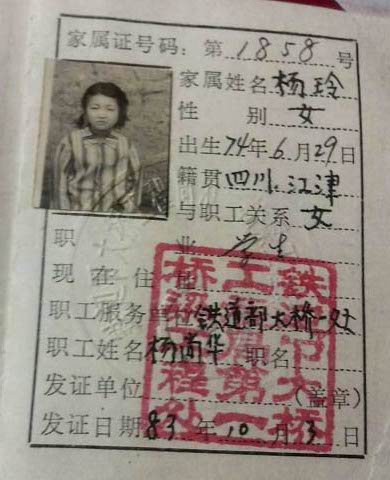 家属证号码：第1858号
家属姓名杨玲
性别女
出生74年6月29日
籍贯四川江津
与职工关系女
职业学生
现在住址
职工服务单位铁道部大桥一处
职工姓名杨尚华 职名
发证单位（盖章）
发证日期83年10月3日